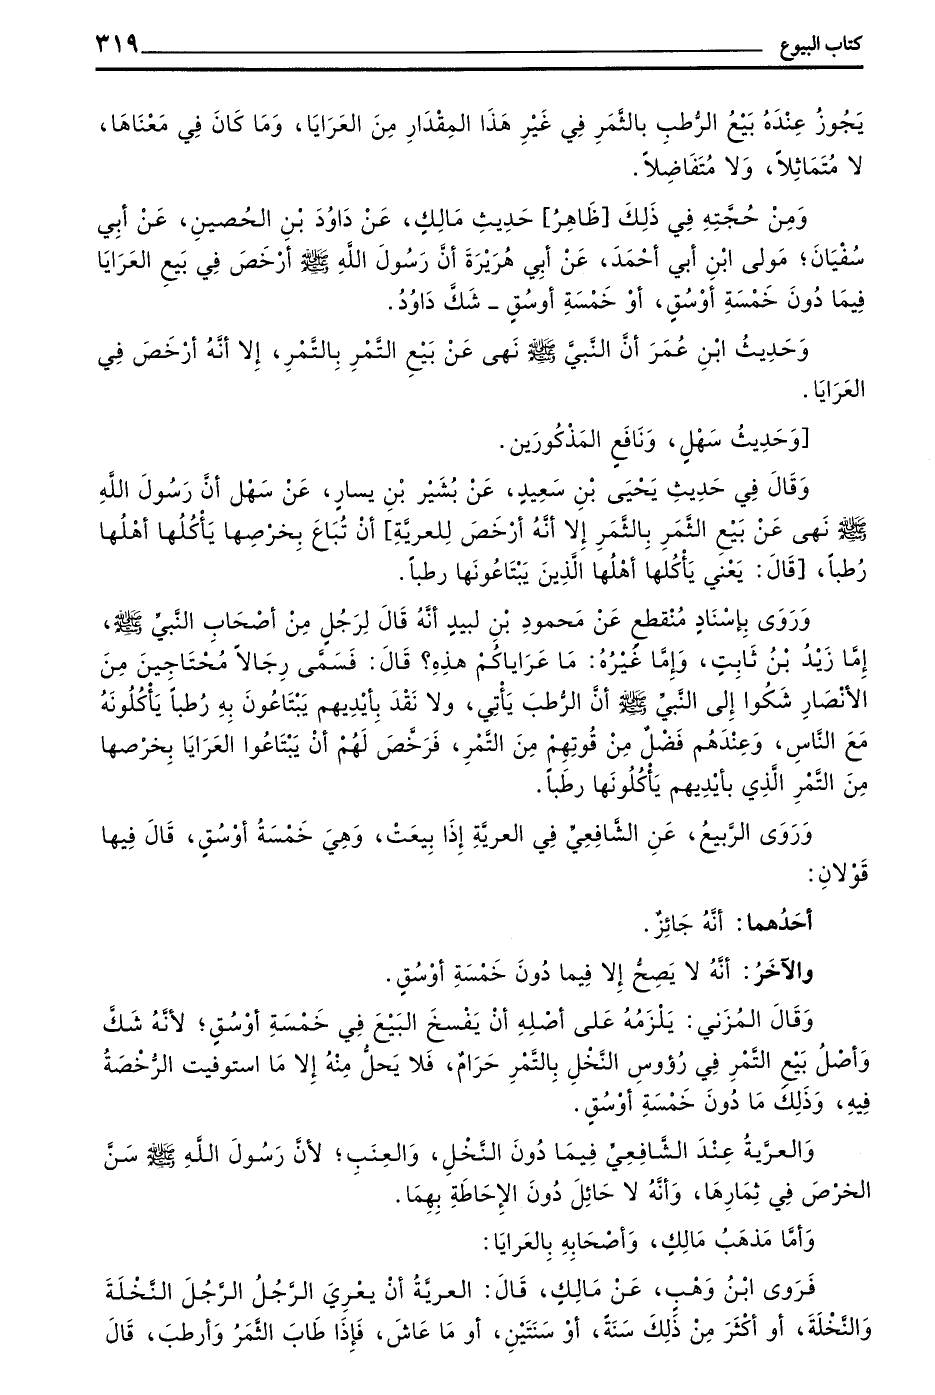 كتاب البيوع ٣١٩
يَجُوزُ عِنْدَهُ بَيْعُ الرُّطبِ بالثَّمَرِ فِي غَيْرِ هَذَا المِقْدَارِ مِنَ العَرَايَا، وَمَا كَانَ فِي مَعْنَاهَا،
لا مُتَمَاثِلاً، وَلا مُتَفَاضِلاً.
وَمِنْ حُجَّتِهِ فِي ذَلِكَ [ظَاهِرُ] حَدِيثِ مَالِكٍ، عَنْ دَاوُدَ بْنِ الحُصينِ، عَنْ أبي
سُفْيَانَ؛ مَولى ابْنِ أبي أحْمَدَ، عَنْ أبي هُرَيْرَةَ أنَّ رَسُولَ اللَّهِ ﷺ أرْخَصَ فِي بَيعِ العَرَايَا
فِيمَا دُونَ خَمْسَةِ أوْسُقٍ، أوْ خَمْسَةِ أوسُقٍ ـ شَكَّ دَاوُدُ.
وَحَدِيثُ ابْنِ عُمَرَ أنَّ النَّبيَّ ﷺ نَهى عَنْ بَيْعِ التَّمْرِ بِالتَّمْرِ، إلا أنَّهُ أرْخَصَ فِي
العَرَايَا.
[وَحَدِيثُ سَهْلٍ، وَنَافَعٍ المَذْكُورَين.
وَقَالَ فِي حَدِيثِ يَحْيَى بْنِ سَعِيدٍ، عَنْ بُشَيْرِ بْنِ يسارٍ، عَنْ سَهْلٍ أنَّ رَسُولَ اللَّهِ
ﷺ نَهى عَنْ بَيْعِ الثَّمَرِ بِالثَّمَرِ إلا أنَّهُ أرْخَصَ لِلعريَّةِ] أنْ تُبَاعَ بِخرْصِها يَأْكُلُها أهْلُها
رُطباً، [قَالَ: يَعْنَي يَأْكُلها أهْلُها الَّذِينَ يَبْتَاعُونَها رطباً.
وَرَوَى بِإسْنَادٍ مُنْقطعٍ عَنْ مَحمودِ بْنِ لبيدٍ أنَّهُ قَالَ لِرَجُلٍ مِنْ أصْحَابِ النَّبيِّ ﷺ،
إمَّا زَيْدُ بْنُ ثَابِتٍ، وَإمَّا غَيْرُهُ: مَا عَرَاياكُمْ هذِهِ؟ قَالَ: فَسَمَّى رِجَالاً مُحْتَاجِينَ مِنَ
الأنْصَارِ شَكُوا إلى النَّبيِّ ﷺ أنَّ الرُّطبَ يَأْتِي، ولا نَقْدَ بِأيْدِيهم يَبْتَاعُونَ بِهِ رُطباً يَأكُلُونَهُ
مَعَ النَّاسِ، وَعِنْدَهُم فَضْلٌ مِنْ قُوتِهِمْ مِنَ التَّمْرِ، فَرَخَّصَ لَهُمْ أنْ يَبْتَاعُوا العَرَايَا بِخَرْصها
مِنَ التَّمْرِ الَّذِي بأيْدِيهم يَأْكُلُونَها رطَباً.
وَرَوَى الرَّبيعُ، عَنِ الشَّافعِيِّ فِي العريَّةِ إذَا بِيعَتْ، وَهِيَ خَمْسَةُ أوْسُقٍ، قَالَ فِيها
قَوْلانِ:
أحَدُهما: أنَّهُ جَائِزٌ.
والآخَرُ: أنَّهُ لا يَصِحُّ إلا فِيما دُونَ خَمْسَةِ أوْسُقٍ.
وَقَالَ المُزَني: يَلْزَمُهُ عَلى أصْلِهِ أنْ يَفْسخَ البَيْعَ فِي خَمْسَةِ أوْسُقٍ؛ لأنَّهُ شَكَّ
وَأصْلُ بَيْعِ التَّمْرِ فِي رُؤوسِ النَّخْلِ بِالتَّمْرِ حَرَامٌ، فَلا يَحلُّ مِنْهُ إلا مَا استوفيت الرُّخْصَةُ
فِيهِ، وَذَلِكَ مَا دُونَ خَمْسَةِ أوْسُقٍ.
وَالعريَّةُ عِنْدَ الشَّافِعِيِّ فِيمَا دُونَ النَّخْلِ، وَالعِنَبِ؛ لأنَّ رَسُولَ اللَّهِ ﷺ سَنَّ
الخرْصَ فِي ثِمَارِهَا، وَأنَّهُ لا حَائِلَ دُونَ الإحَاطَةِ بِهِمَا.
وَأمَّا مَذهَبُ مَالِكٍ، وَأصْحَابِهِ بِالعَرايَا:
فَرَوى ابْنُ وَهْبٍ، عَنْ مَالِكٍ، قَالَ: العريَّةُ أنْ يعْرِيَ الرَّجُلُ الرَّجُلَ النَّخْلَةَ
وَالنَّخْلَةَ، أو أكْثَرَ مِنْ ذَلِكَ سَنَةً، أوْ سَنَتَيْنِ، أو مَا عَاشَ، فَإذَا طَابَ الثَّمَرُ وَأرطبَ، قَالَ